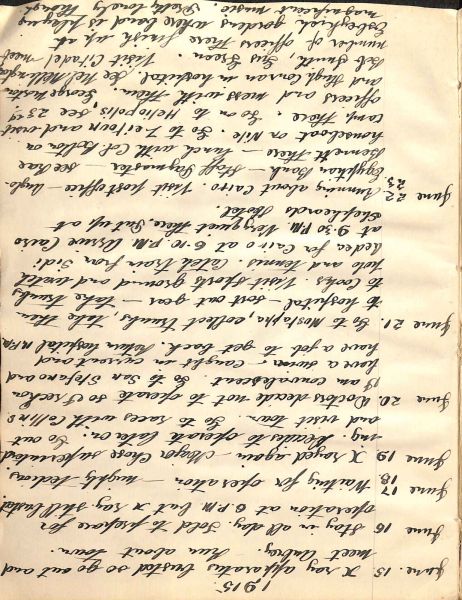 1915.
June. 15 X ray apparatus busted so go out and
meet Aubrey. Run about town.
June 16 Stay in all day. Told to prepare for
operation at 6 P.M. but X ray still busted.
June 17 Waiting for operation — mighty tedious.
18.
June 19. X rayed again — Major Chose superintend
-ing. Decides to operate later on. Go out
and visit town. Go to races with Collins.
June 20 Doctors decide not to operate so I reckon
I am convalescent. Go to San Stefano and
have a swim. — Caught in current and
have a job to get back. Return hospital
June 21. Go to Mustapha, collect trunks, take them
to hospital — sort out gear — take trunks
to Cooks. Visit Sports ground and watch
polo and tennis. Catch train from Sidi
for Cairo at 6.10 P.M. Arrive Cairo
at 9.30 P.M. Very quiet there. Put up at
Shepheards Hotel.
June 22 Running about Cairo. Visit post office — Anglo-
23.
Egyptian Bank — Staff Paymaster — see Rae
Bennett there — lunch with Col. on
houseboat on Nile. Go to Zeitoun and visit
camp there. Go on to Heliopolis, see
officers and mess with them. George
and Hugh Conran in hospital. See
Bob Smith, Gus Green. Visit Citadel meet
number of officers there. Finish up at
Esbeykieh gardens where band is playing
magnificent music. Really lovely